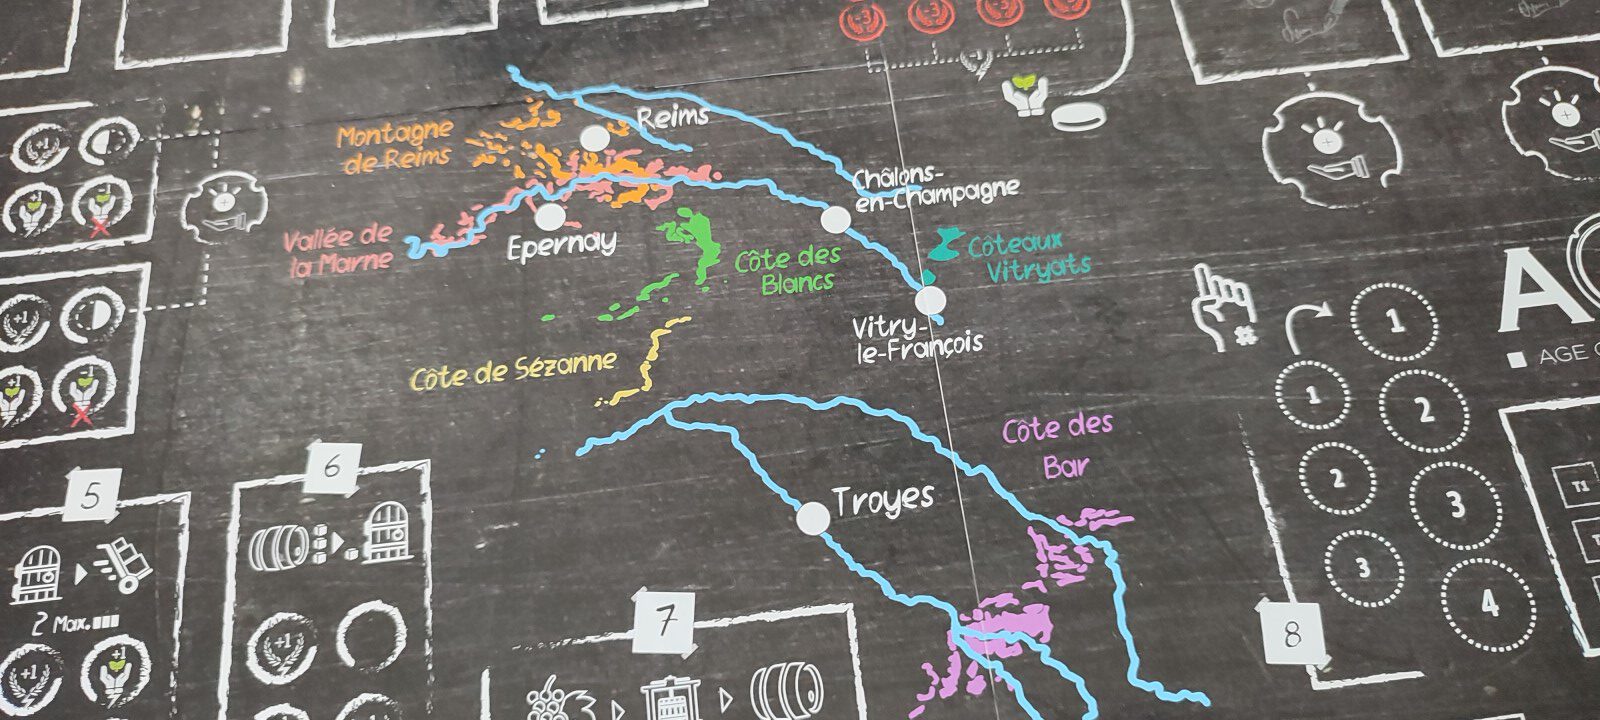 -3
-3
-3
-3
-1
+1
+1
+1
Reims
Montagne
de Reims
Châlons-
en-Champagne
Vallée de
la Marne
Epernay
Côte des
Blancs
Côteaux
Vitryats
Vitry-
le-François
Côte de Sézanne
+1
+1
+1
Côte des
Bar
Troyes
1
1
2
2
3
3
4
A
AGE
T1
5
2 Max.
+1
+1
6
+1
7
8